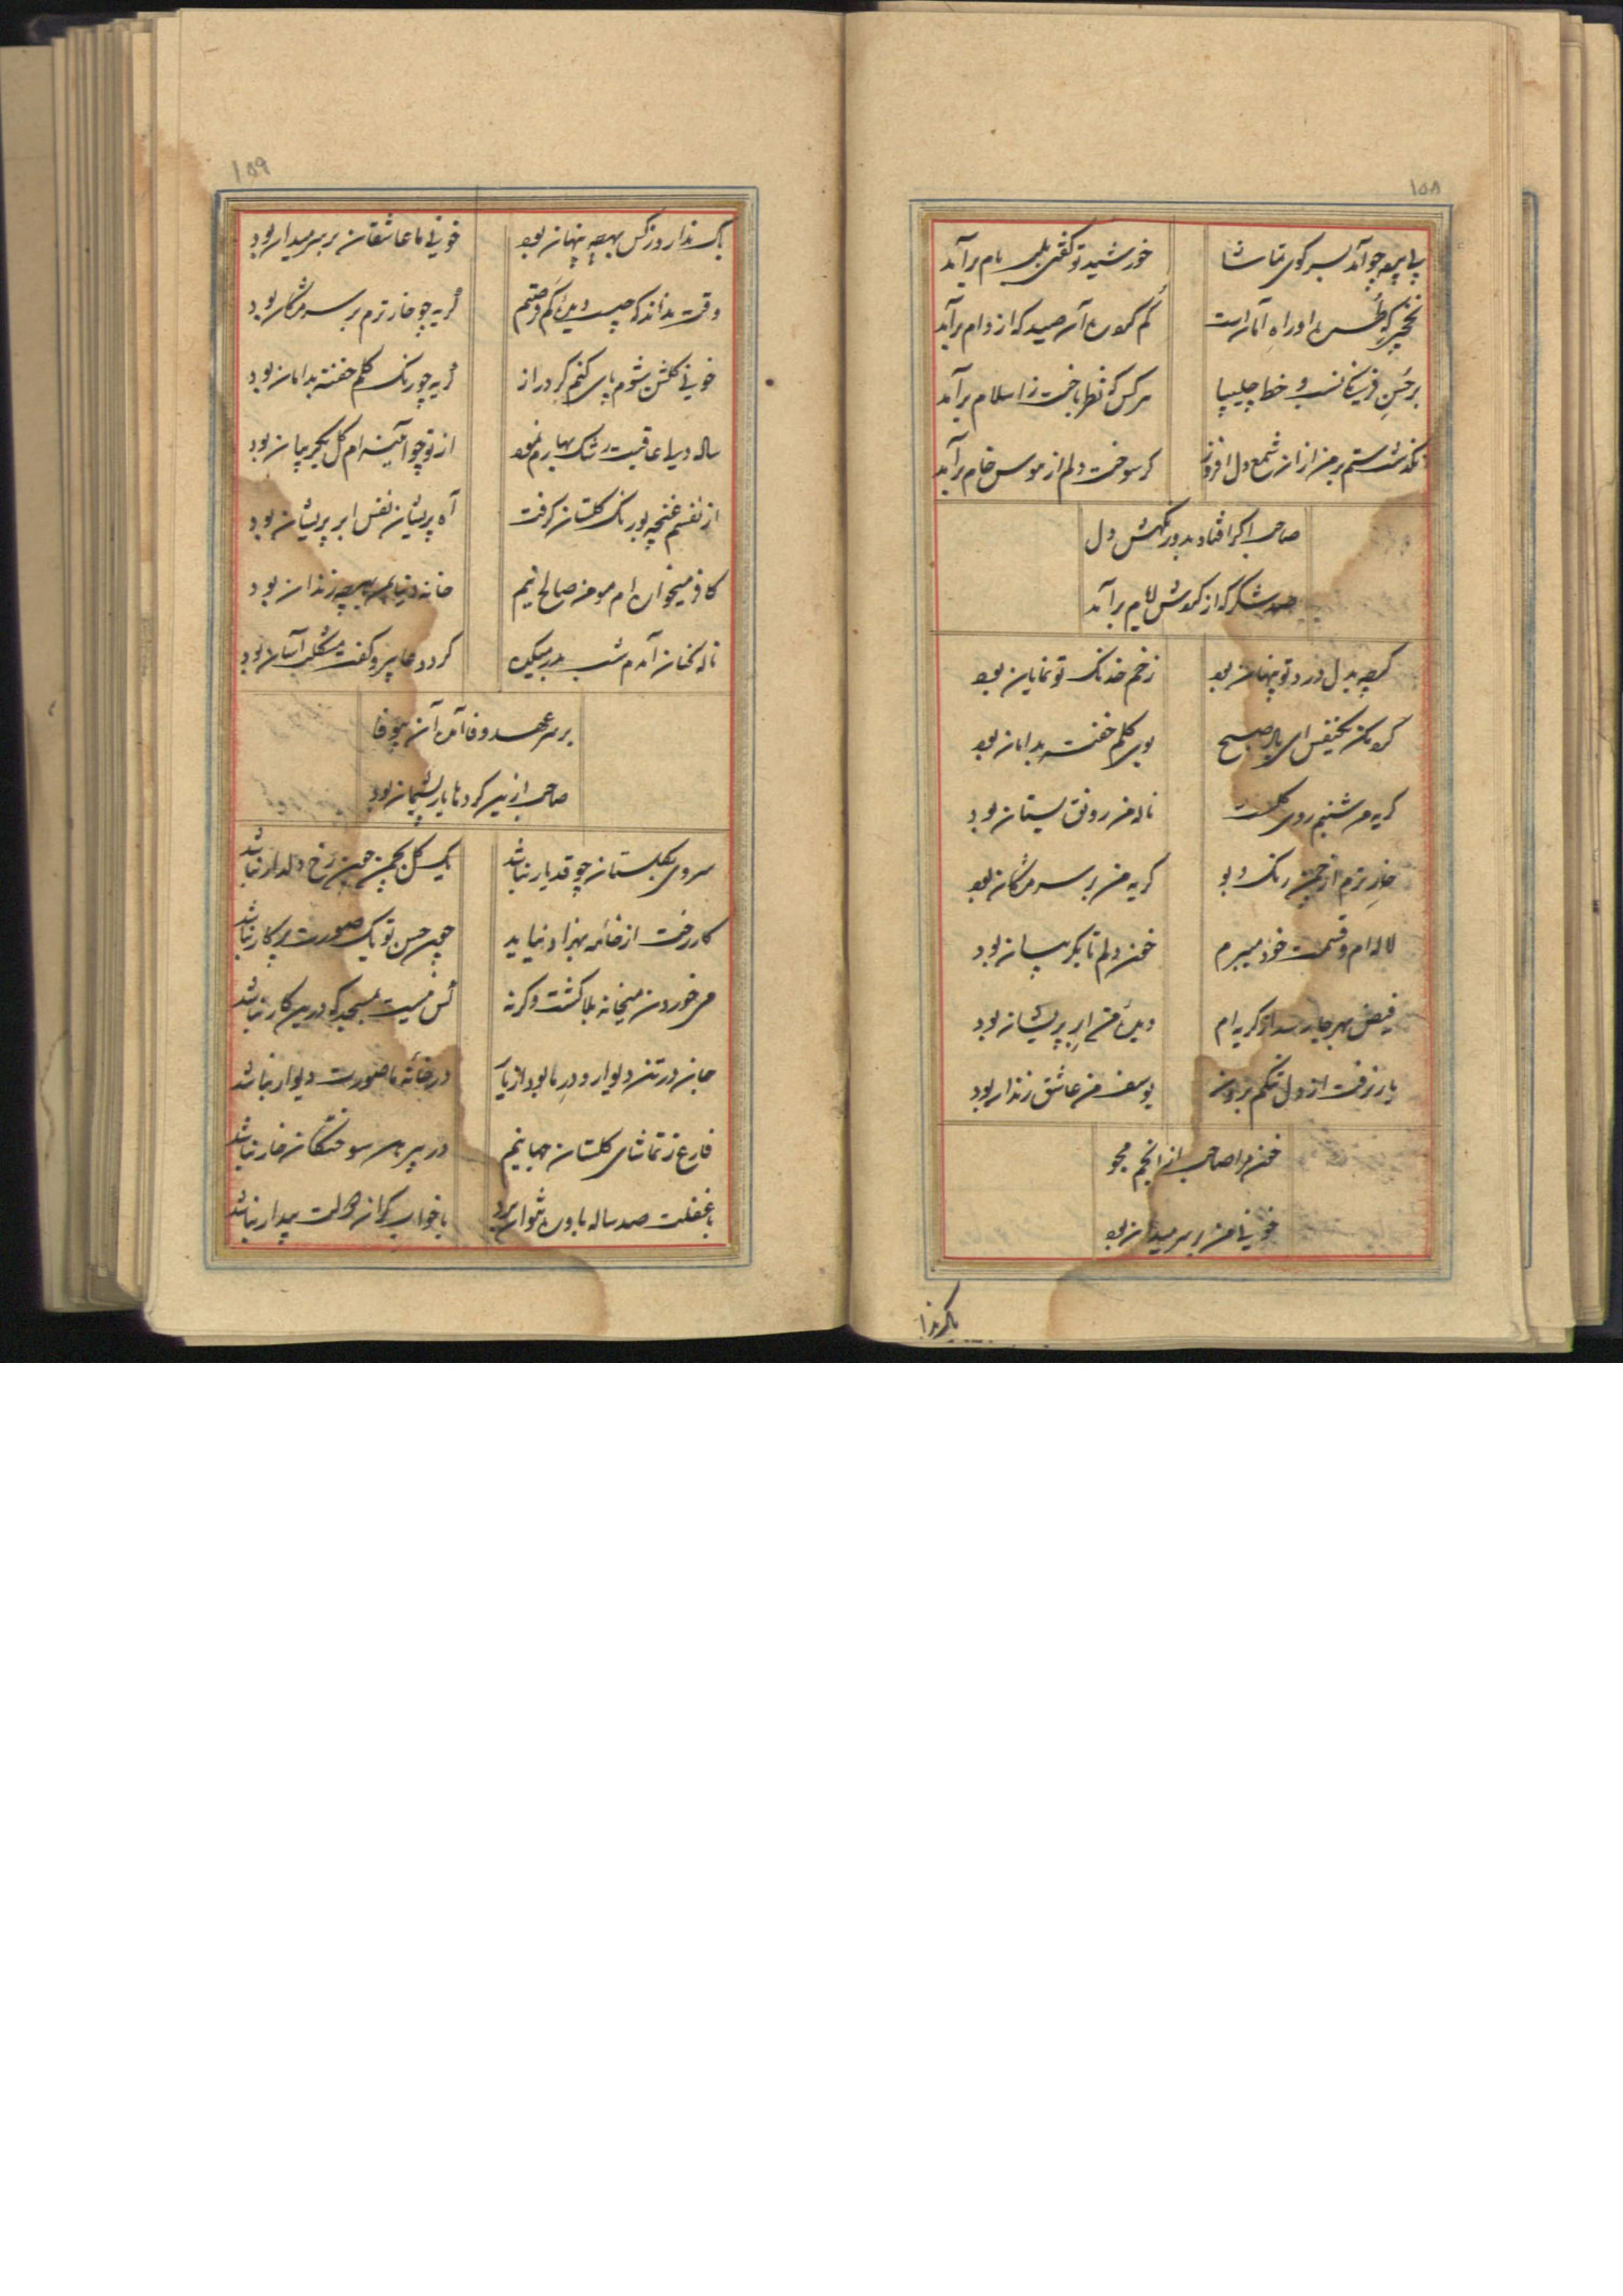 ۱۵۸
بی پرده چو آید بسر کوی تماشا
خورشید تو گفتی بلب بام برآمد
نخچیر که طرز او راه امان است
گم کرده آن صید که از دام برآمد
بر حسن فرنگانه و خط چلیپا
هر کس که نظر باخت ز اسلام برآمد
نگذشت ستم بر من از آن شمع دل افروز
گر سوخت دلم از هوس خام برآمد
صاحب اگر افتاد بدور نگهش دل
صد شکر که از گردش ایام برآمد
گرچه بدل درد تو پنهان بود
زخم خدنگ تو نمایان بود
گرو مکن یکنفس ای باد صبح
بوی گلم خفته بدامان بود
گریه من شبنم روی گلست
ناله من رونق بستان بود
خار ترم از چمن رنگ و بو
گریه من بر سر مژگان بود
لاله ام و قسمت خود میبرم
خون دلم تا بگریبان بود
فیض بهر جا رسد از گریه ام
دیده من ابر پریشان بود
یار نرفت از دل تنگم برون
یوسف من عاشق زندان بود
خون مرا صاحب از انجم مجو
خونی من بر سر میدان بود
باک ندارد
۱۵۹
باک ندارد ز کس بهر چه پنهان بود
خونی ما عاشقان بر سر میدان بود
وقت نداند که چیست دیده کم فرصتم
گریه چو خار ترم بر سر مژگان بود
خونی گلشن شوم پای کنم گر دراز
گریه چو رنگ گلم خفته بدامان بود
ساله دریا عاقبت رشک بهارم نمود
از تو چو آئینه ام گل بگریبان بود
از نفسم غنچه بو رنگ گلستان گرفت
آه پریشان نفس ابر پریشان بود
کافر میخواره ام مومن صالح نیم
خانه دنیا بمن بهر چه زندان بود
ناله کنان آمدم شب بدر میکده
کرد دعا پیر و گفت مشکلت آسان بود
بر سر عهد وفا آمده آن بیوفا
صاحب ازین کرده ها یار پشیمان بود
سروی بگلستان چو قد یار نباشد
یک گل بچمن چون رخ دلدار نباشد
کار رخت از خامه بهزاد نیاید
چون حسن تو یک صورت پرکار نباشد
می خوردن میخانه بلا گشت وگرنه
کس نیست بمسجد که درین کار نباشد
جان در تن دیوار و در ما بود از یار
در خانه ما صورت دیوار نباشد
فارغ ز تماشای گلستان جهانیم
در پیرهن سوختگان خار نباشد
با غفلت صد ساله باو ره نتوان برد
با خواب گران دولت بیدار نباشد